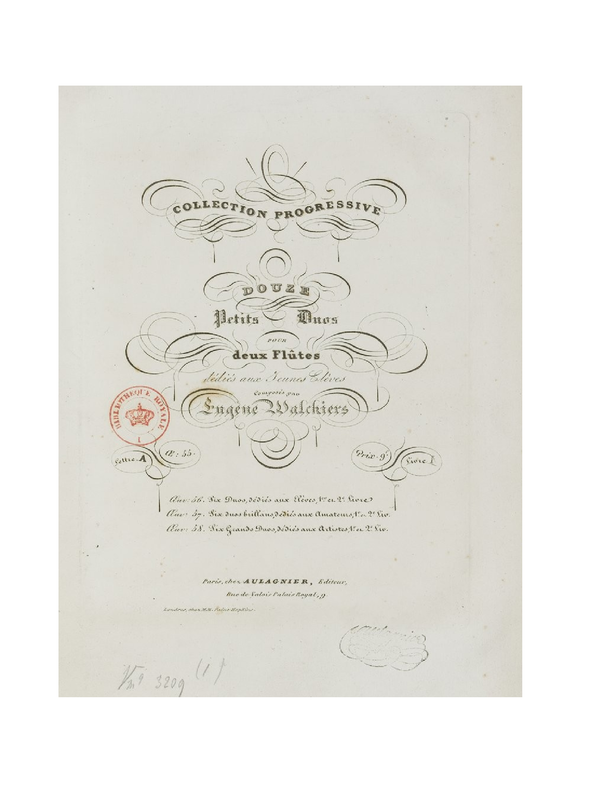 COLLECTION PROGRESSIVE
DOUZE
Petits Duos
POUR
deux Flûtes
dédiés aux Jeunes Elèves
Composés par
Eugène Walckiers
BIBLIOTHEQUE ROYALE
Lettre A
Œ: 55.
Prix. 9f
Livre I
Œuv: 56. Six Duos, dédiés aux Elèves, 1er et 2e Livre.
Œuv: 57. Six duos brillans, dédiés aux Amateurs, 1er et 2e Liv.
Œuv: 58. Six Grands Duos, dédiés aux Artistes, 1er et 2e Liv.
Paris, chez AULAGNIER, Editeur,
Rue de Valois Palais Royal, 9.
Londres, chez M.M.
Vm9 3209 (1)